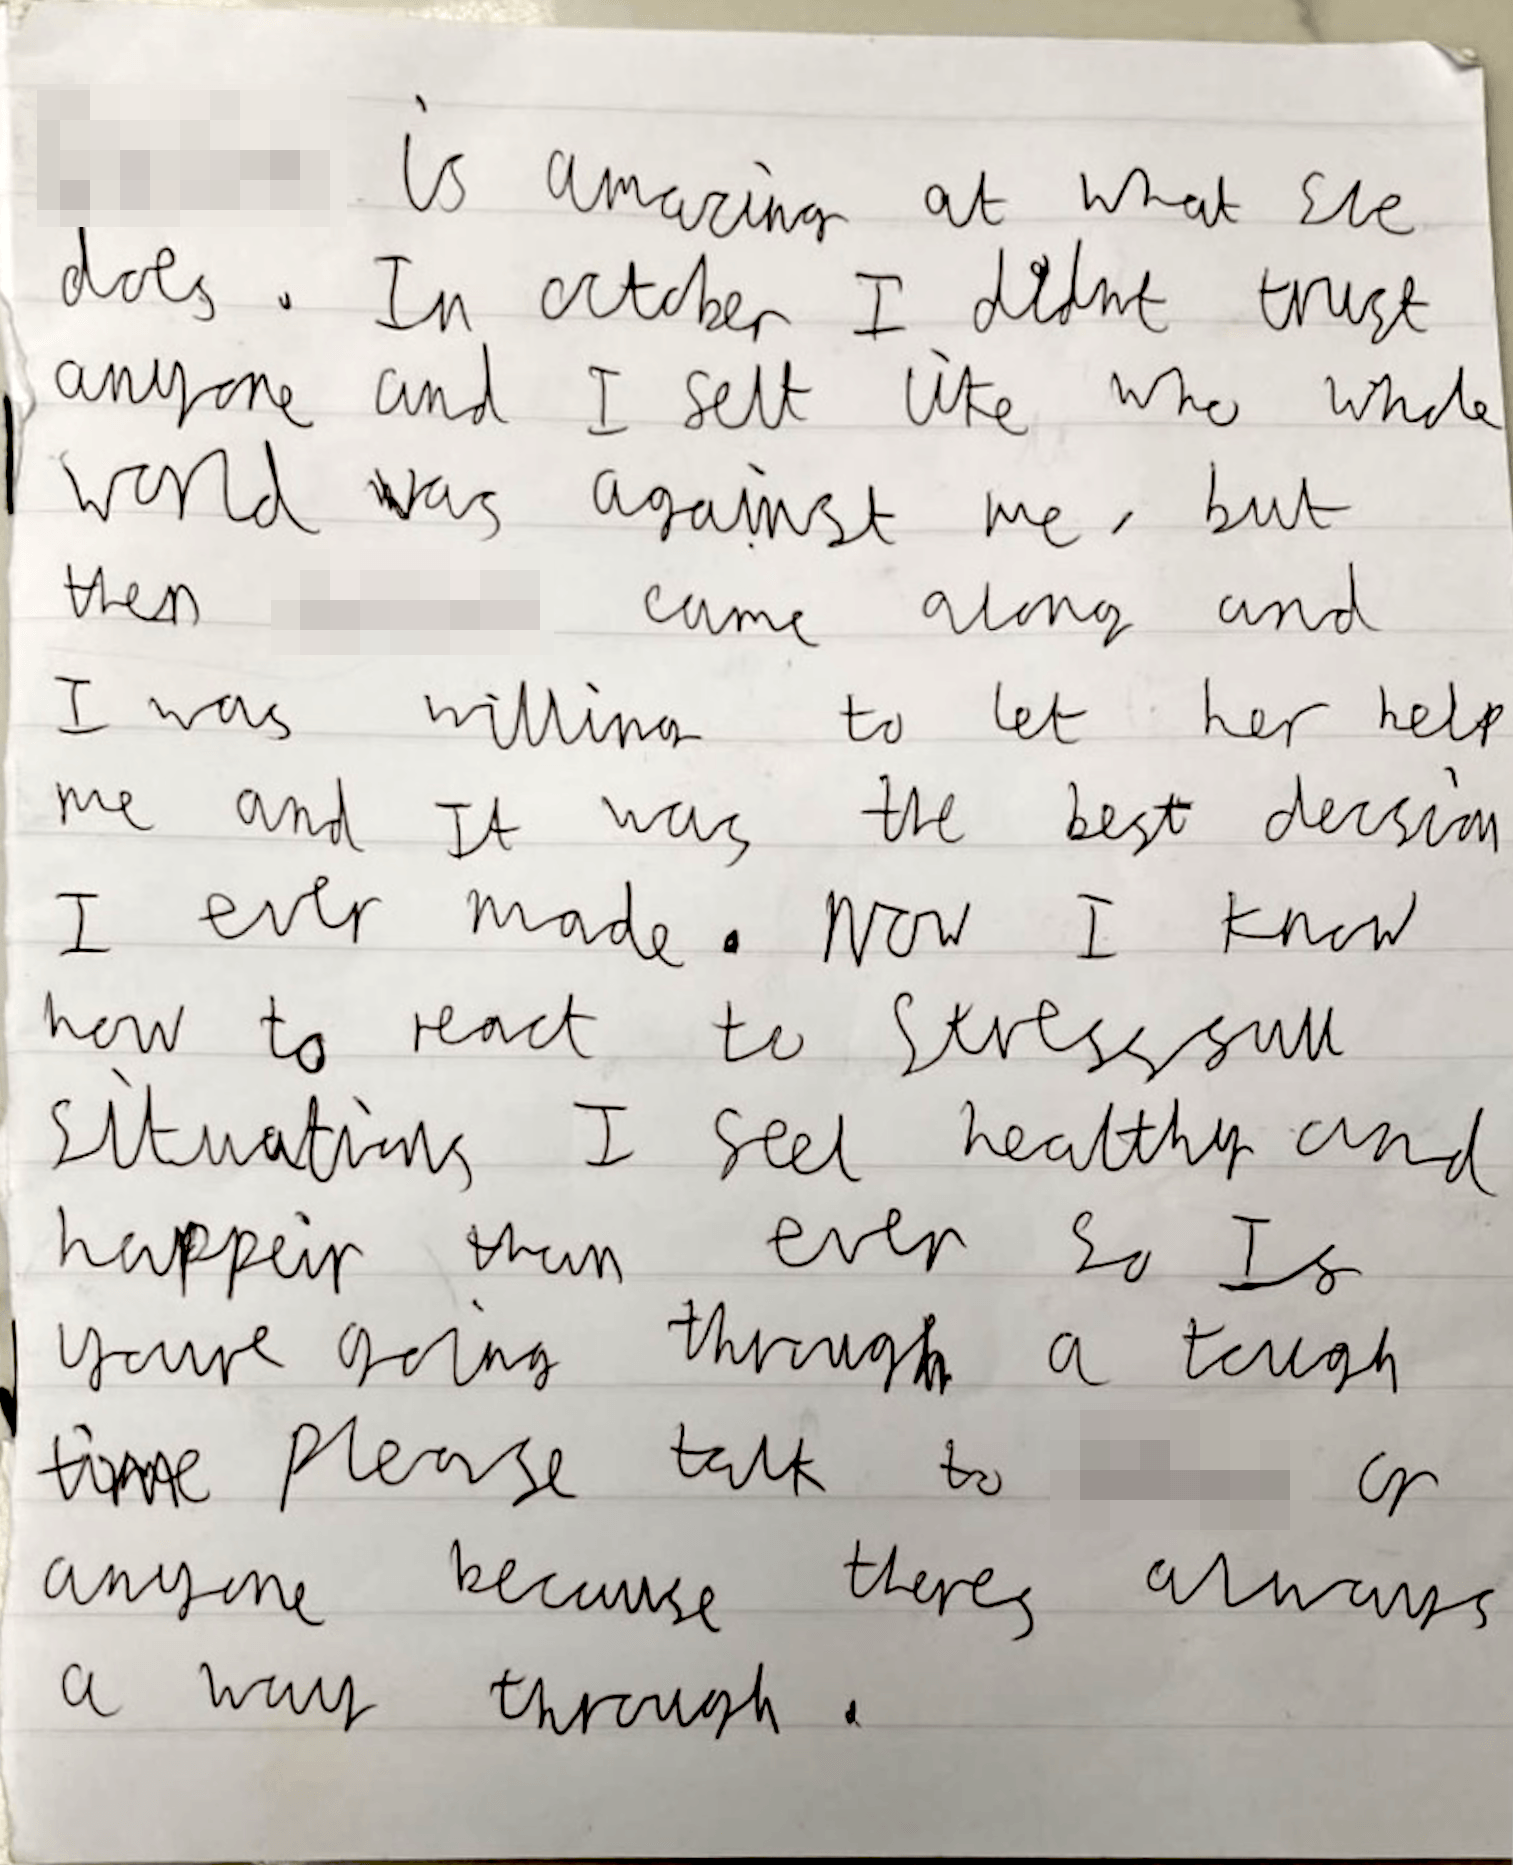 is amazing at what she
does. In october I didnt trust
anyone and I felt like who whole
world was against me, but
then came along and
I was willing to let her help
me and It was the best decision
I ever made. Now I know
how to react to stressfull
situations I feel healthy and
happeir than ever so If
youre going through a tough
time please talk to or
anyone because theres always
a way through.